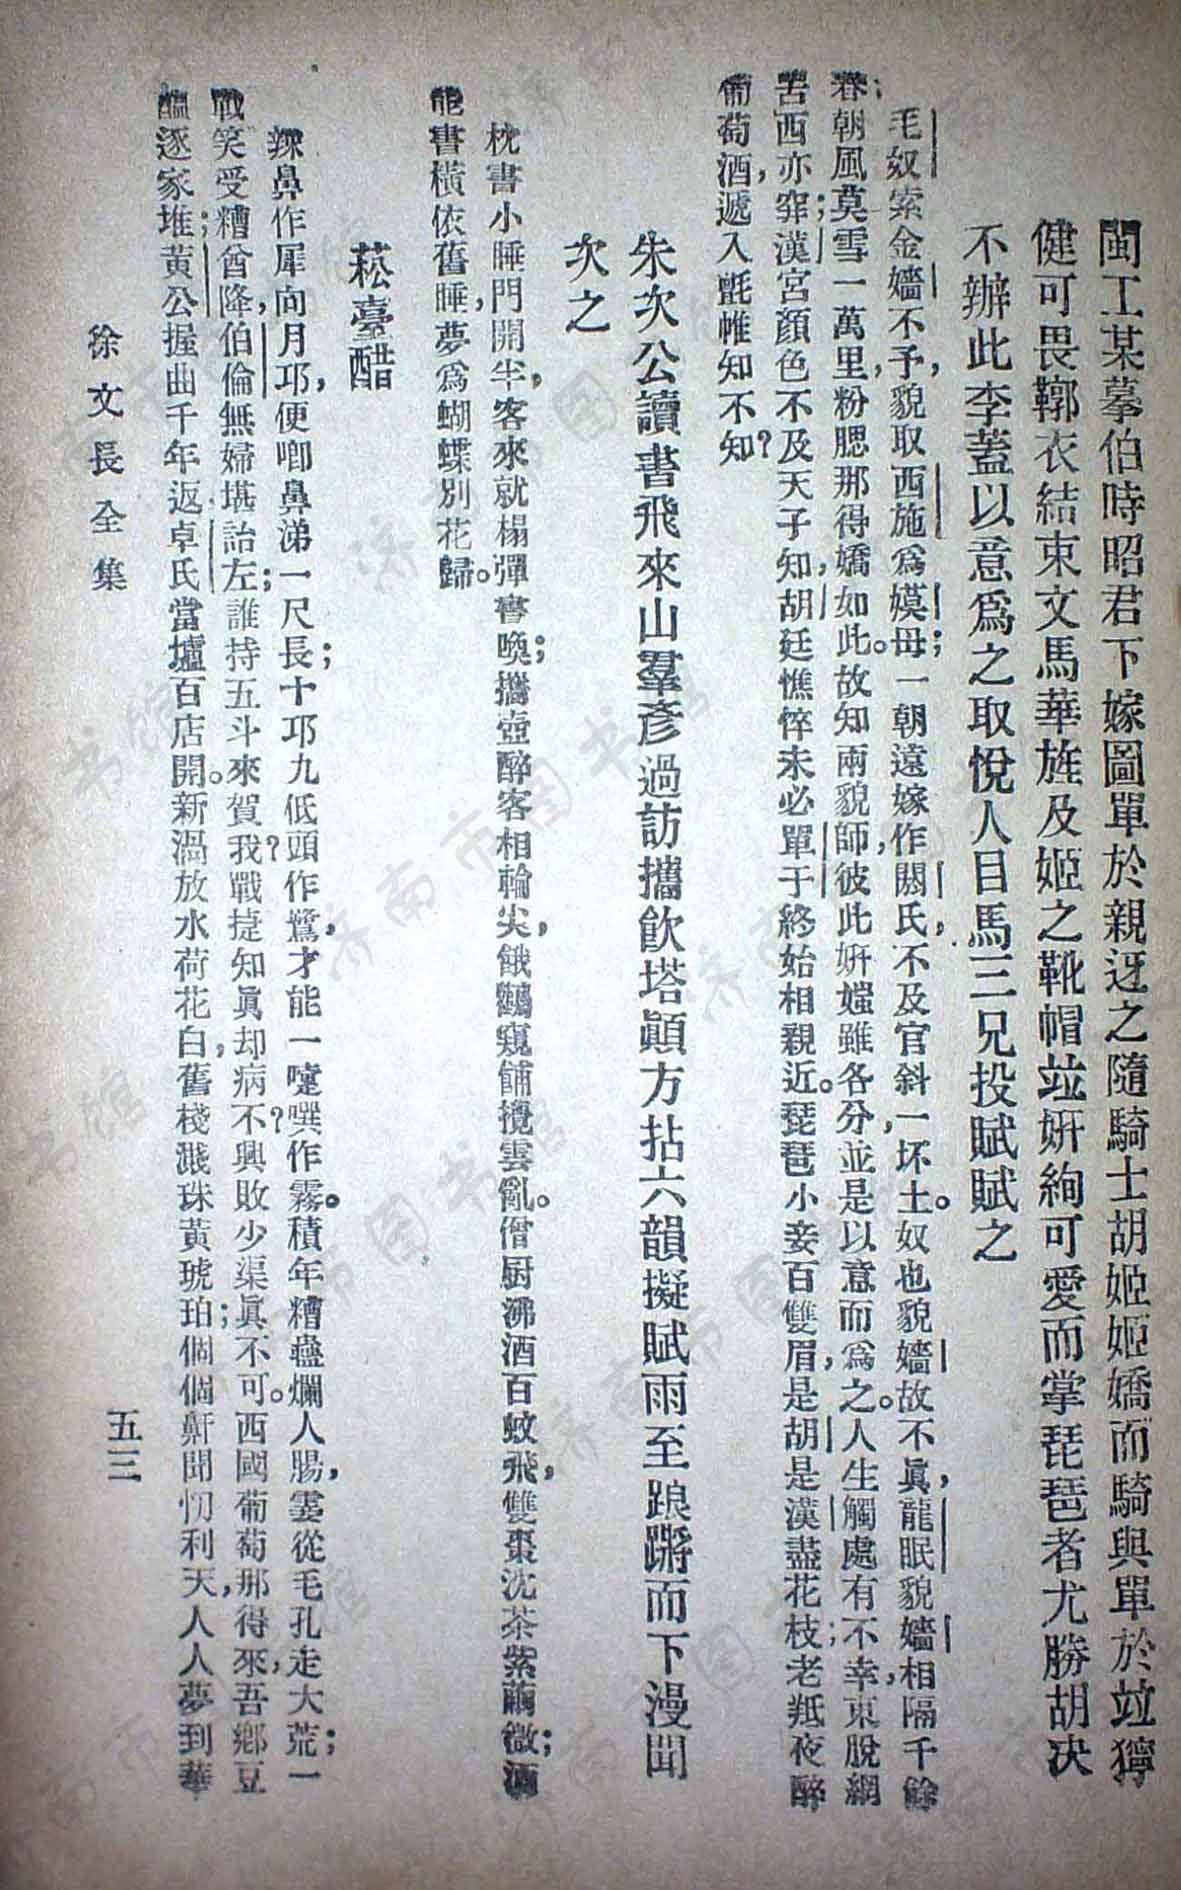 閩工某摹伯時昭君下嫁圖單於親迓之隨騎士胡姬姬嬌而騎與單於竝獰
健可畏鞹衣結束文馬華旌及姬之靴帽竝妍絢可愛而掌琵琶者尤勝胡决
不辦此李蓋以意爲之取悅人目馬三兄投賦賦之
毛奴索金嬙不予，貌取西施爲嫫母；一朝遠嫁作閼氏，不及官斜一坏土。奴也貌嬙故不眞，龍眠貌嬙相隔千餘
春；朝風莫雪一萬里，粉腮那得嬌如此。故知兩貌師，彼此妍媸雖各分，並是以意而爲之。人生觸處有不幸，東脫網
苦西亦穽；漢宮顏色不及天子知，胡廷憔悴未必單于終始相親近。琵琶小妾百雙眉，是胡是漢盡花枝；老羝夜醉
葡萄酒，遞入氈帷知不知？
朱次公讀書飛來山羣彥過訪攜飲塔顚方拈六韻擬賦雨至踉蹡而下漫聞
次之
枕書小睡門開半，客來就榻彈書喚；攜壺醉客相輪尖，餓鸛窺餔攪雲亂。僧厨沸酒百蚊飛，雙棗沈茶紫繭微；酒
能書橫依舊睡，夢爲蝴蝶別花歸。
菘臺醋
辣鼻作犀向月邛，便唧鼻涕一尺長；十邛九低頭作鷺，才能一嚏噀作霧。積年糟蠱爛人腸，霎從毛孔走大荒；一
戰笑受糟酋降，伯倫無婦堪詒左；誰持五斗來賀我？戰捷知眞却病不？興敗少渠眞不可。西國葡萄那得來，吾鄉豆
醞逐家堆；黃公握曲千年返，卓氏當壚百店開。新渦放水荷花白，舊棧濺珠黃琥珀；個個鼾聞忉利天，人人夢到華
徐文長全集
五三